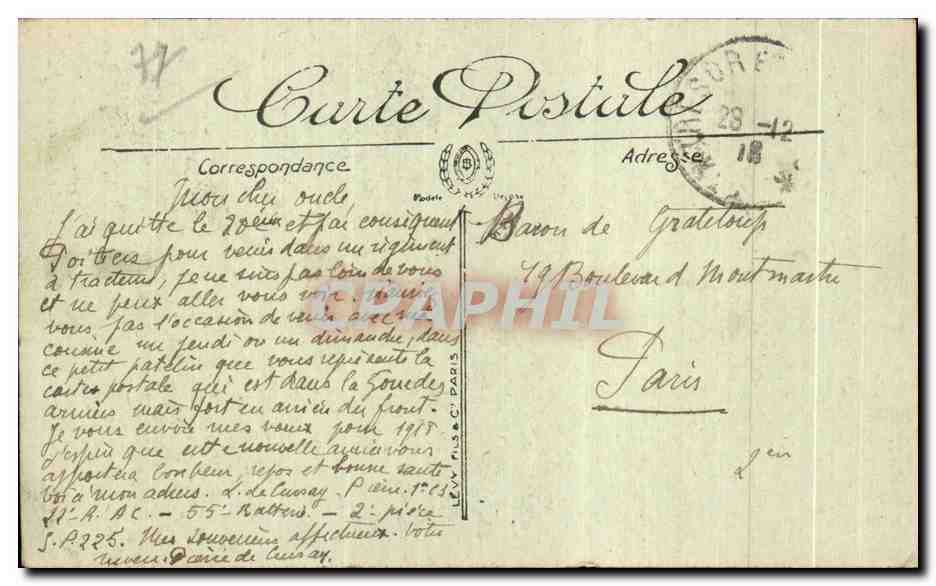 77
Carte Postale
Correspondance
Adresse
28 -12
18
Modèle Vérone
Mon cher oncle,
J'ai quitté le 20ème et par conséquent
Poitiers pour venir dans un régiment
à tracteurs, je ne suis pas loin de vous
et ne peux aller vous voir. N'aurez
vous pas l'occasion de venir avec ma
cousine un jeudi ou un dimanche, dans
ce petit patelin que vous représente la
carte postale qui est dans la zone des
armées mais fort en arrière du front.
Je vous envoie mes vœux pour 1918
j'espère que cette nouvelle année vous
apportera bonheur, repos et bonne santé
voici mon adresse. L. de Cursay. Pierre. 1er CS
22e R. AC. - 55e Batterie - 2e pièce
S.P. 225. Mes souvenirs affectueux. Votre
neveu. Pierre de Cursay.
LÉVY FILS & Cie PARIS
Baron de Grateloup
19 Boulevard Montmartre
Paris
2em
CPAPHIL